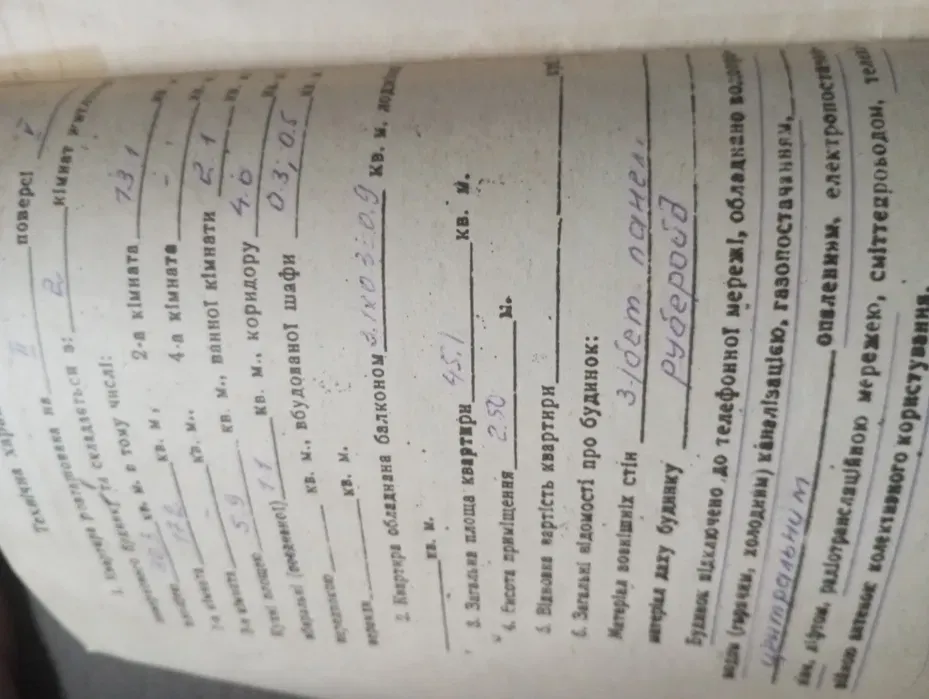 Технічна харак
1. Квартира розташована на II поверсі V
поверхового будинку та складається з: 2 кімнат житлової
площею 30.3 кв. м. в тому числі:
17.2 кв. м., 2-а кімната 13.1 кв.
3-я кімната - кв. м., 4-а кімната - кв.
Кухні площею 5.9 кв. м., ванної кімнати 2.1 кв.
вбиральні (поєднаної) 1.1 кв. м., коридору 4.0 кв.
кв. м., вбудованої шафи 0.3; 0.5 кв.
кв. м.
2. Квартира обладнана балконом 3.1х0.3=0.9 кв. м. лоджією
кв. м.
3. Загальна площа квартири 45.1 кв. м.
4. Висота приміщення 2.50 м.
5. Відновна вартість квартири
6. Загальні відомості про будинок:
Матеріал зовнішніх стін з-/бет. панел.
матеріал даху будинку рубероїд
Будинок підключено до телефонної мережі, обладнано водопро
водом (гарячим, холодним) каналізацією, газопостачанням,
центральним опаленням, електропостачан
ням, ліфтом, радіотрансляційною мережею, сміттєпроводом, теле
колективного користування.